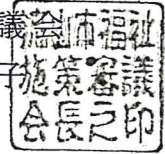 議会
子
流山市福祉
施策審議
会長之印